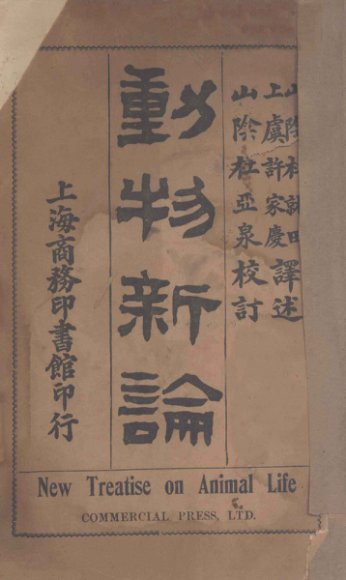 山陰杜就田
上虞許家慶譯述
山陰杜亞泉校訂
動物新論
上海商務印書館印行
New Treatise on Animal Life
COMMERCIAL PRESS, LTD.